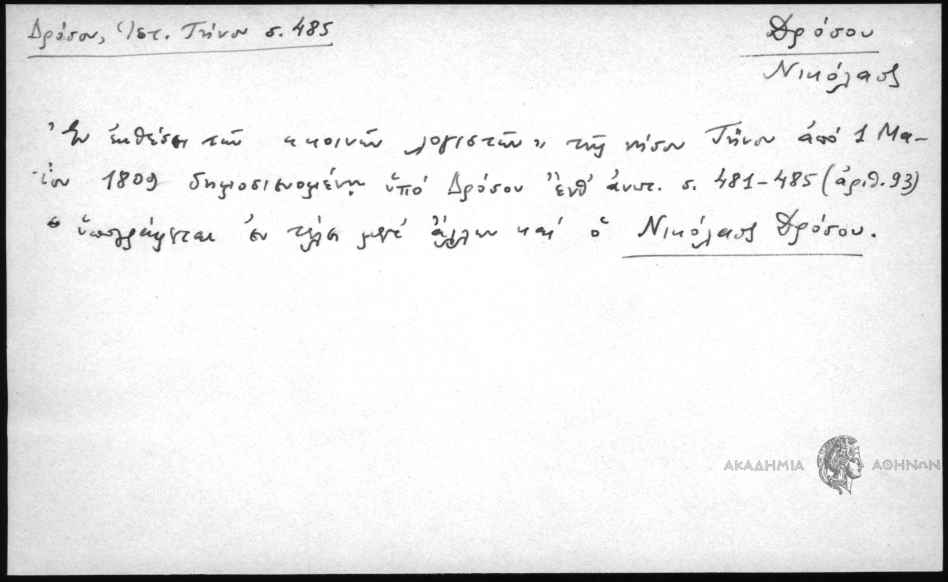 Δρόσου, Ἱστ. Τήνου σ. 485
Δρόσου
Νικόλαος
Ἐν ἐκθέσει τῶν «κοινῶν λογιστῶν» τῆς νήσου Τήνου ἀπό 1 Μα-
ΐου 1809 δημοσιευομένῃ ὑπό Δρόσου ἔνθ' ἀνωτ. σ. 481-485 (ἀριθ. 93)
ὑπογράφεται ἐν τέλει μετά ἄλλων καί ὁ Νικόλαος Δρόσου.
ΑΚΑΔΗΜΙΑ ΑΘΗΝΩΝ